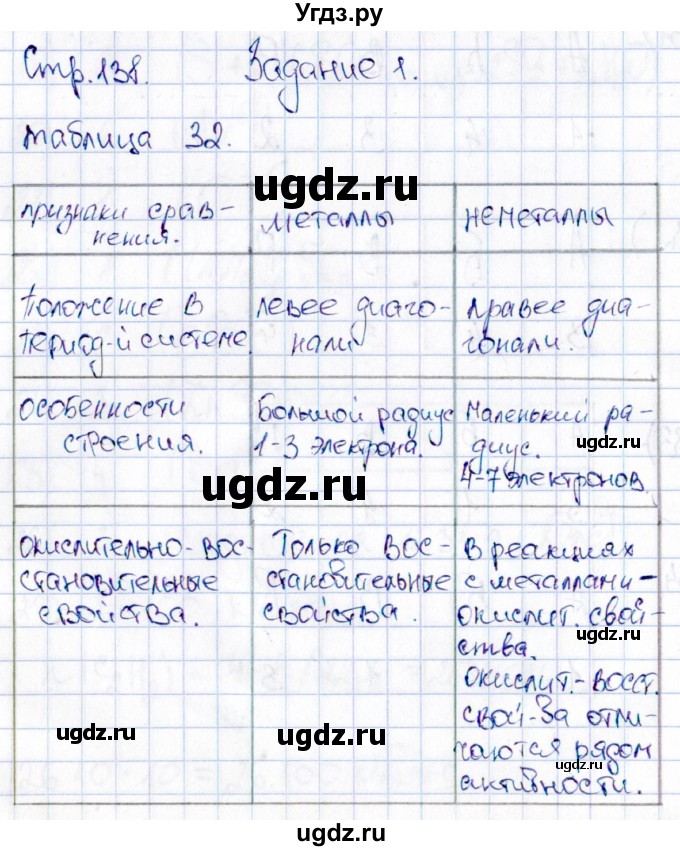 Угдз.ру
Стр. 138. Задание 1.
таблица 32.
ugdz.ru
признаки срав-
нения.
металлы
неметаллы
Положение в
период-й системе.
левее диаго-
нали
правее диа-
гонали.
особенности
строения.
Большой радиус
1-3 электрона.
Маленький ра-
диус.
4-7 электронов
ugdz.ru
ugdz.ru
окислительно-вос-
становительные
свойства.
Только вос-
становительные
свойства.
в реакциях
с металлами -
окислит. свой-
ства.
окислит.-восст.
свой-ва отли-
чаются рядом
активности.
ugdz.ru
ugdz.ru
ugdz.ru
ugdz.ru
ugdz.ru